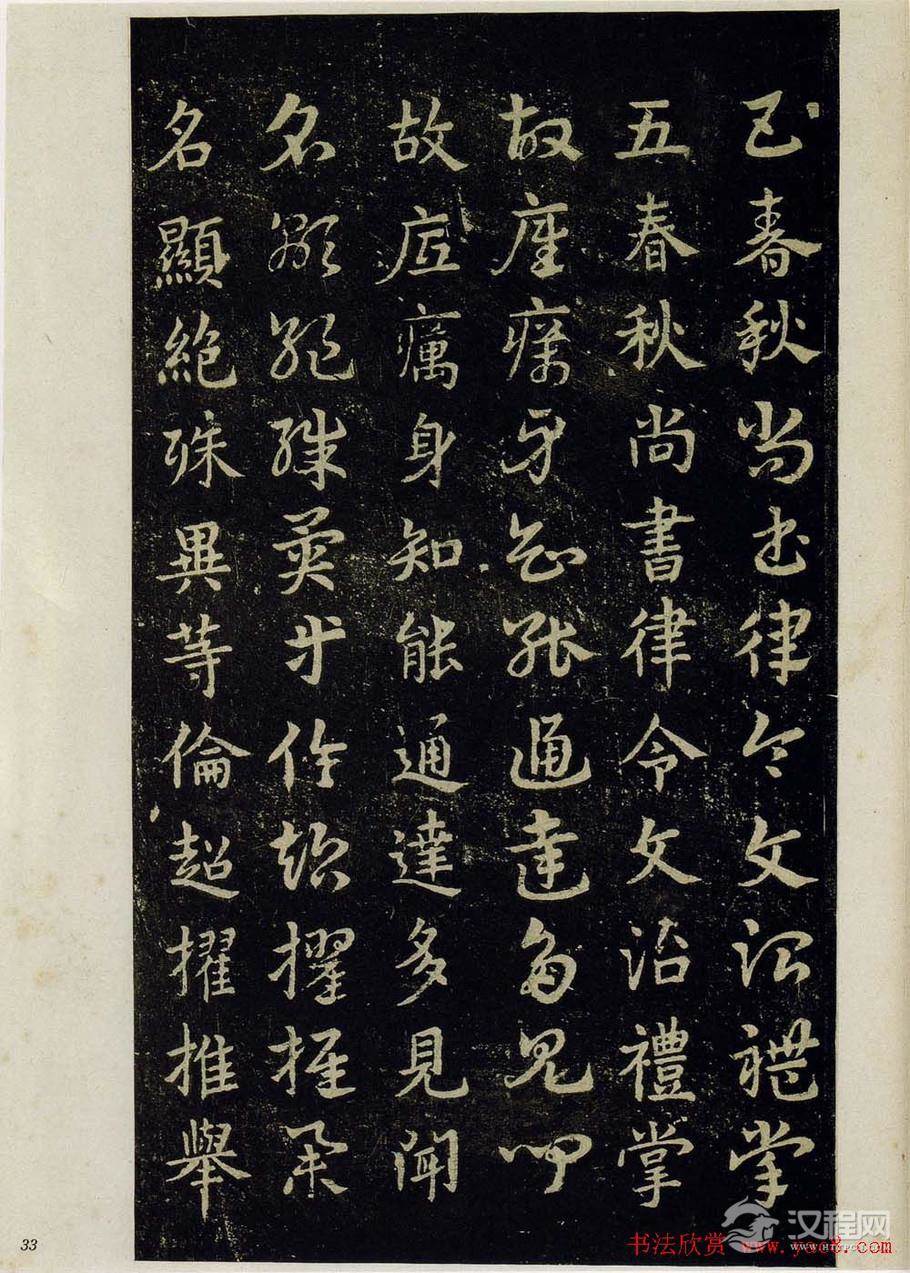 五春秋尚書律令文治禮掌
五春秋尚書律令文治禮掌
故底癘身知能通達多見聞
故底癘身知能通達多見聞
名顯絶殊異等倫超擢推舉
名顯絶殊異等倫超擢推舉
33
书法欣赏 www.yac8.com
汉程网